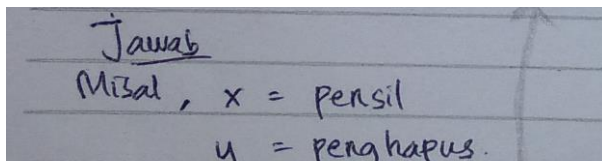 Jawab
Misal, x = pensil
y = penghapus.